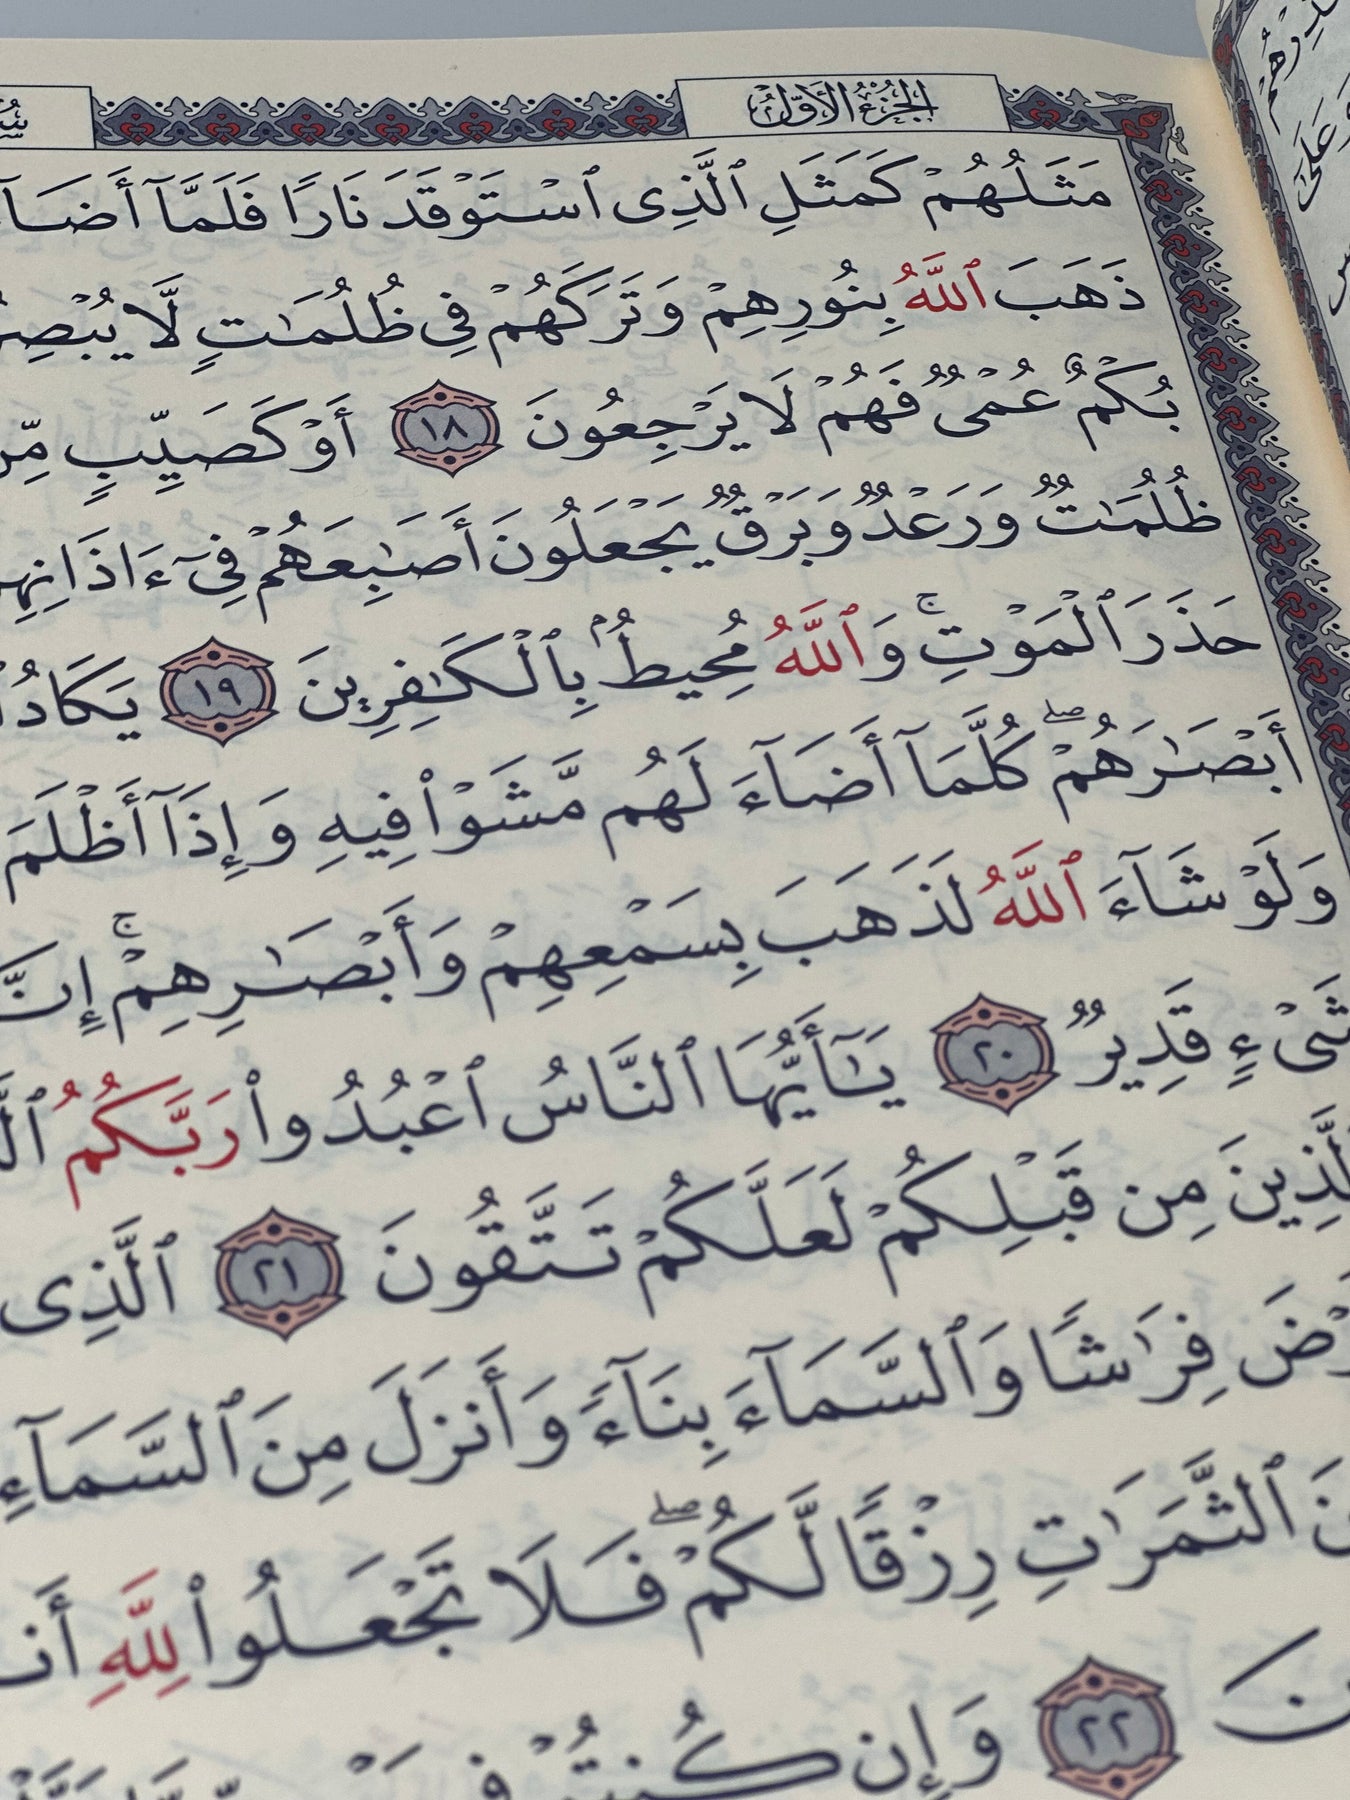 الجزء الأول
مَثَلُهُمْ كَمَثَلِ ٱلَّذِى ٱسْتَوْقَدَ نَارًا فَلَمَّآ أَضَآءَ
ذَهَبَ ٱللَّهُ بِنُورِهِمْ وَتَرَكَهُمْ فِى ظُلُمَـٰتٍ لَّا
بُكْمٌ عُمْىٌ فَهُمْ لَا يَرْجِعُونَ ١٨ أَوْ كَصَيِّبٍ
ظُلُمَـٰتٌ وَرَعْدٌ وَبَرْقٌ يَجْعَلُونَ أَصَـٰبِعَهُمْ فِىٓ
حَذَرَ ٱلْمَوْتِ ۚ وَٱللَّهُ مُحِيطٌۢ بِٱلْكَـٰفِرِينَ ١٩
أَبْصَـٰرَهُمْ ۖ كُلَّمَآ أَضَآءَ لَهُم مَّشَوْا۟ فِيهِ وَإِذَآ أَظْلَمَ
وَلَوْ شَآءَ ٱللَّهُ لَذَهَبَ بِسَمْعِهِمْ وَأَبْصَـٰرِهِمْ ۚ إِنَّ
شَىْءٍ قَدِيرٌ ٢٠ يَـٰٓأَيُّهَا ٱلنَّاسُ ٱعْبُدُوا۟ رَبَّكُمُ
مِن قَبْلِكُمْ لَعَلَّكُمْ تَتَّقُونَ ٢١ ٱلَّذِى
فِرَٰشًا وَٱلسَّمَآءَ بِنَآءً وَأَنزَلَ مِنَ ٱلسَّمَآءِ
ٱلثَّمَرَٰتِ رِزْقًا لَّكُمْ ۖ فَلَا تَجْعَلُوا۟ لِلَّهِ
٢٢ وَإِن كُنتُمْ